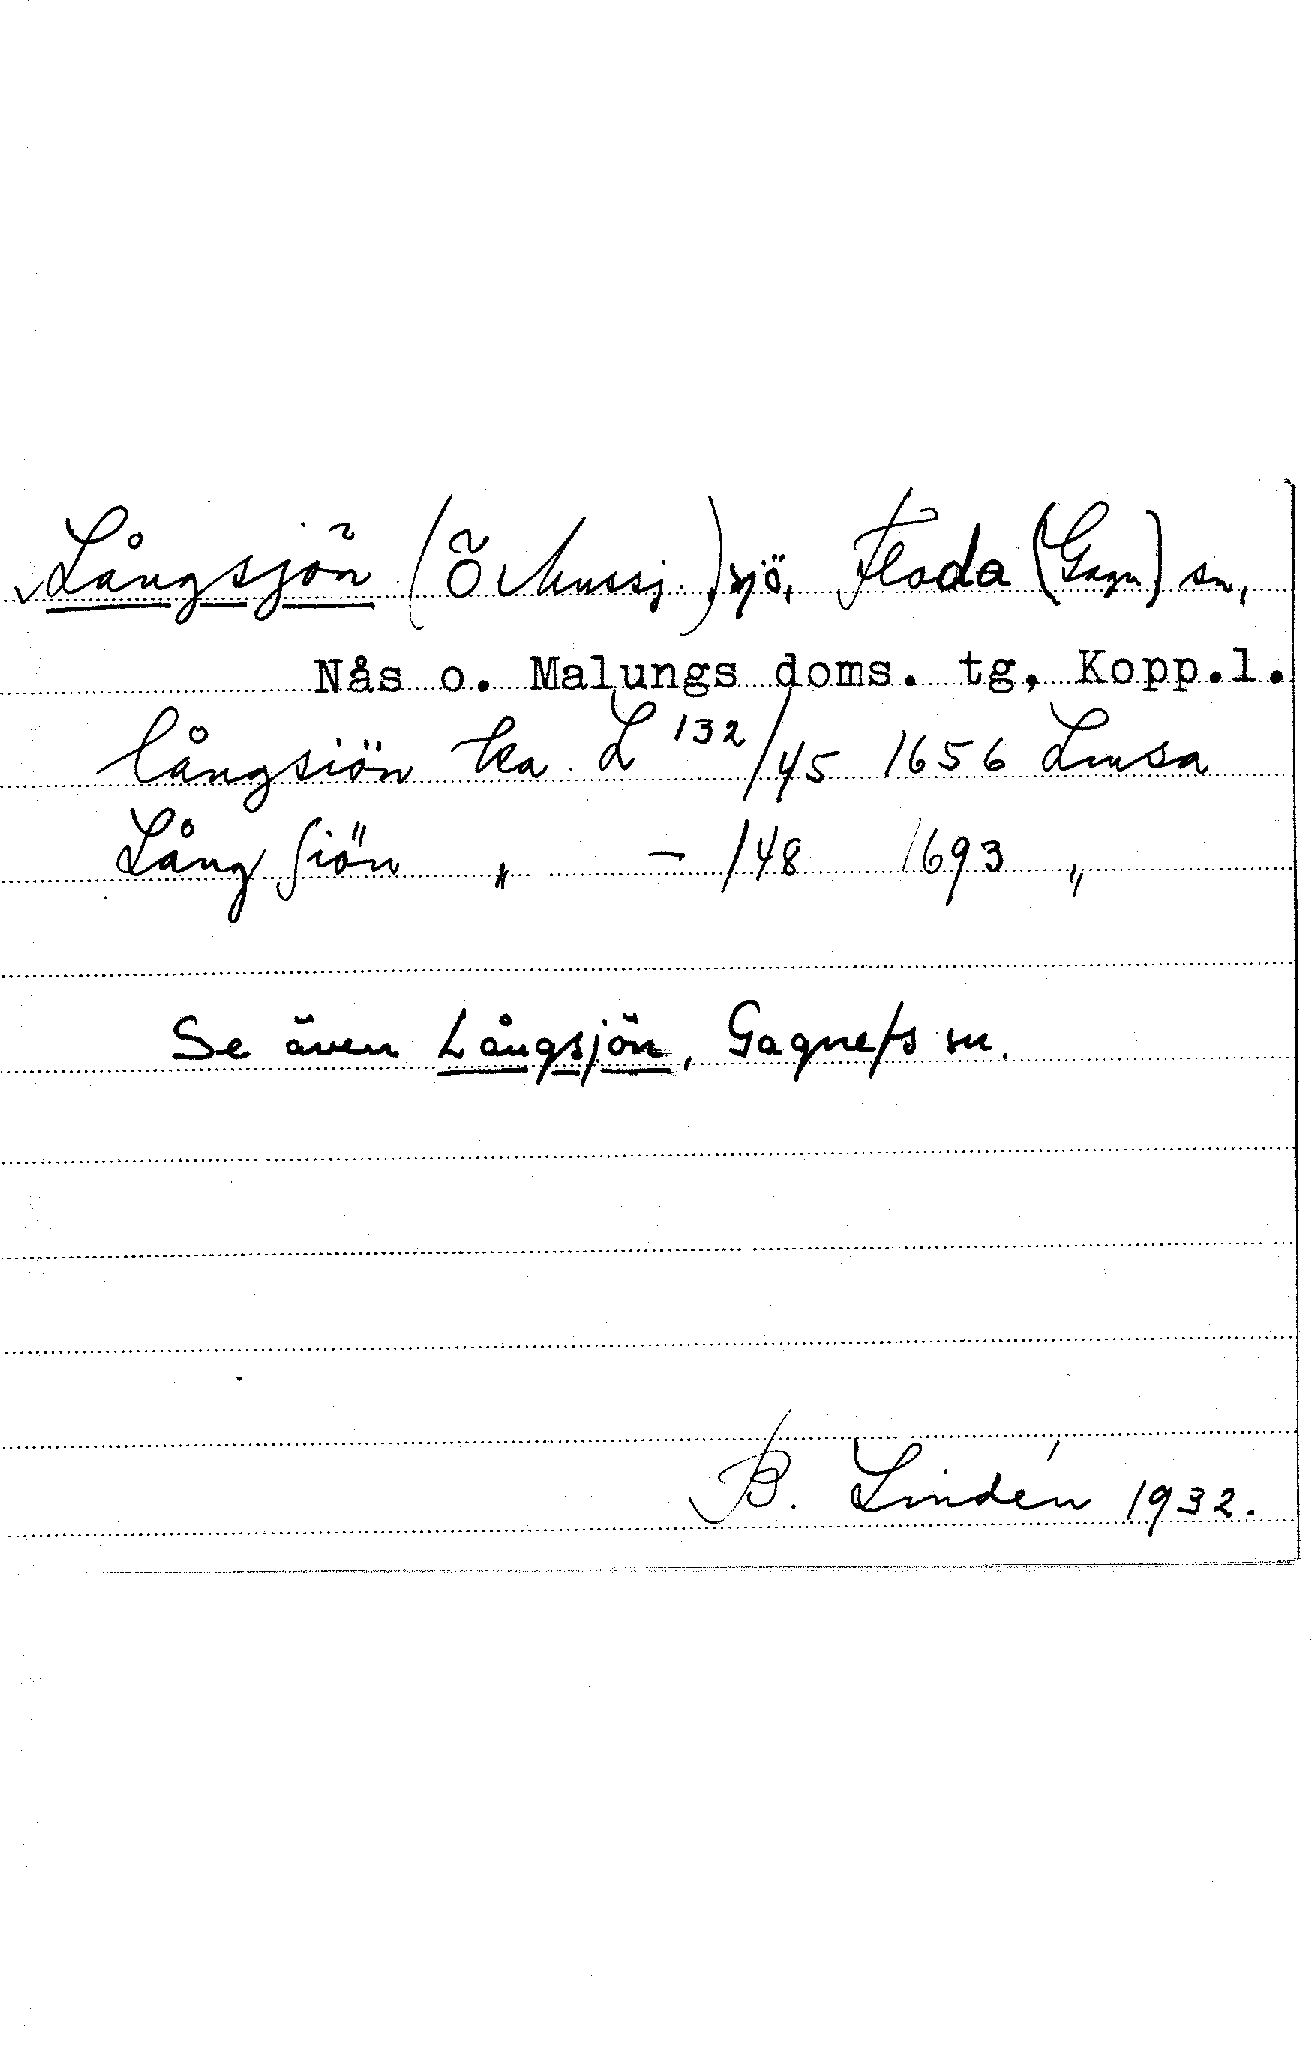 Långsjön (Ö Mussj.) sjö, Floda (Gagn) sn,
Nås o. Malungs doms. tg, Kopp.l.
långsiön ka L 132/45 1656 Lmsa
Lång Siön „ — /48 1693 „
Se även Långsjön, Gagnefs sn.
B. Lindén 1932.